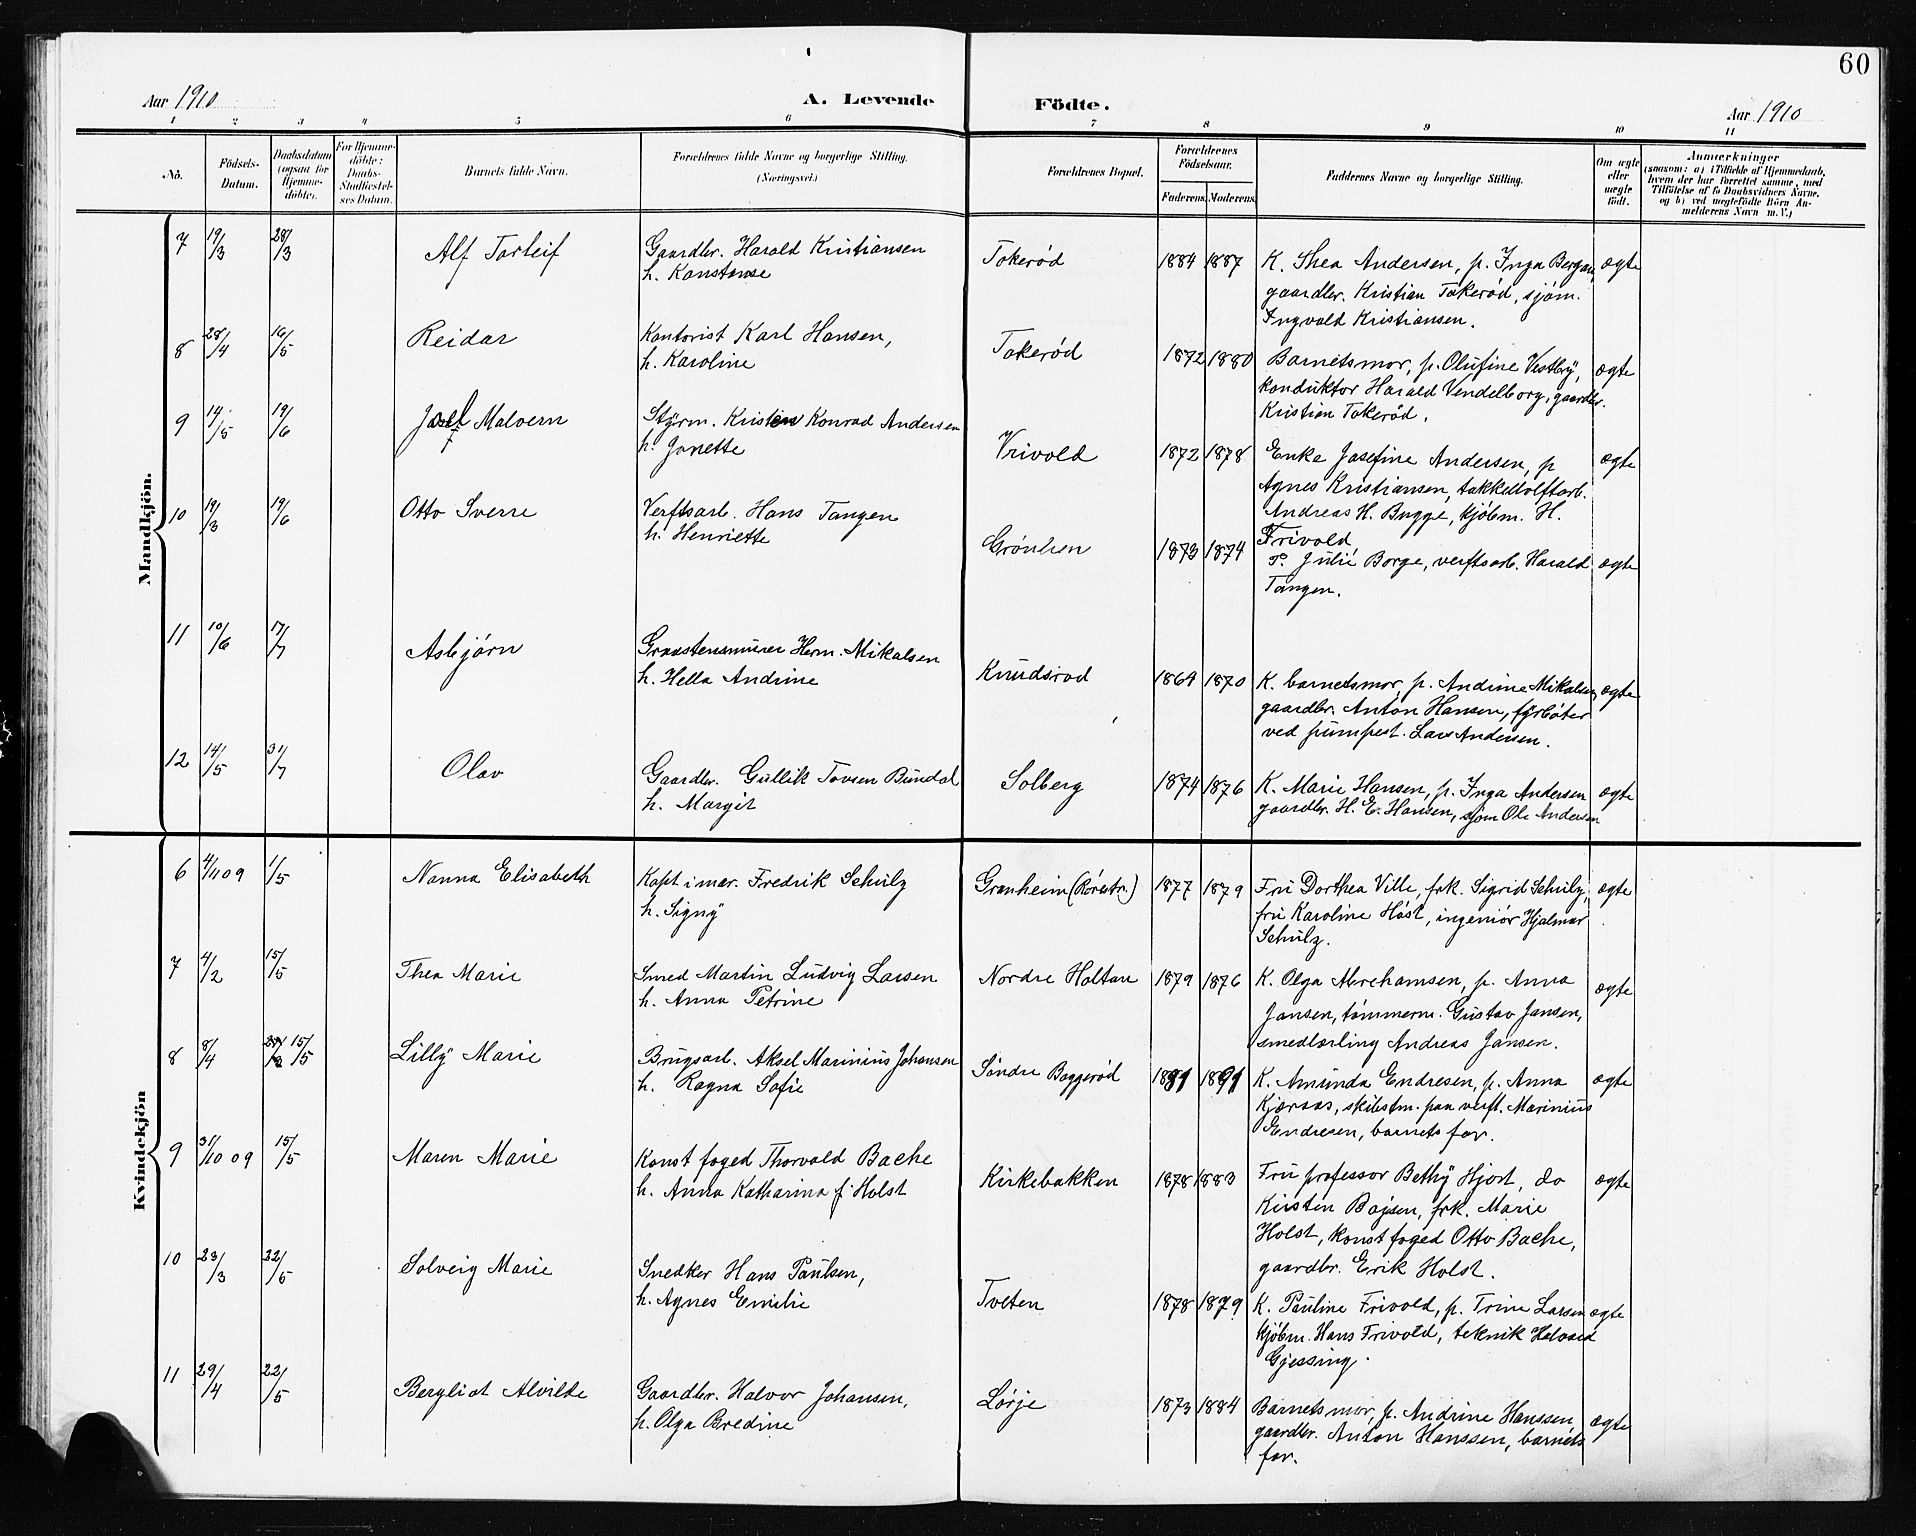 60
Aar 1910
A. Levende
Födte.
Aar 1910
1 2 3 4 5 6 7 8 9 10 11
No.
Födsels-
Datum.
Daabsdatum
(ogsaa for
Hjemme-
döbte).
For Hjemme-
döbte:
Daabs-
Stadfæstel-
ses Datum.
Barnets fulde Navn.
Forældrenes fulde Navne og borgerlige Stilling.
(Næringsvei.)
Forældrenes Bopæl.
Forældrenes
Födselsaar.
Faderens.
Moderens.
Faddernes Navne og borgerlige Stilling.
Om ægte
eller
uægte
födt.
Anmærkninger
(saasom: a) i Tilfælde af Hjemmedaab,
hvem der har forrettet samme, med
Tilföielse af to Daabsvidners Navne.
og b) ved uægtefödte Börn An-
melderens Navn m. V.)
Mandkjön.
7 19/3 28/3 Alf Torleif Gaardbr. Harald Kristiansen
h. Konstanse
Tokerød 1884 1887 K. Thea Andersen, p. Inga Bergan, ægte
gaardbr. Kristian Tokerød, sjøm.
Ingvald Kristiansen.
8 28/4 16/5 Reidar Kontorist Karl Hansen,
h. Karoline
Tokerød 1872 1880 Barnets mor, p. Olufine Vestby, ægte
konduktør Harald Vendelborg, gaardbr.
Kristian Tokerød.
9 14/5 19/6 Josef Malvern Styrm. Kristen Konrad Andersen
h. Janette
Vrivold 1872 1878 Enke Josefine Andersen, p ægte
Agnes Kristiansen, takkelloftarb.
Andreas H. Bugge, kjøbm. H.
Frivold
10 19/3 19/6 Otto Sverre Verftsarb. Hans Tangen
h. Henriette
Grönlien 1873 1874 P. Julie Borge, verftsarb. Harald ægte
Tangen.
11 10/6 17/7 Asbjørn Graastensmurer Herm. Mikalsen
h. Hella Andrine
Knudsrød 1869 1870 K. barnets mor, p. Andrine Mikalsen, ægte
gaardbr. Anton Hansen, fyrbøter
ved pumpest. Lars Andersen.
12 14/5 31/7 Olav Gaardbr. Gullik Tovsen Bundal
h. Margit
Solberg 1874 1876 K. Marie Hansen, p. Inga Andersen ægte
gaardbr. H. E. Hansen, sjøm Ole Andersen
Kvindekjön
6 4/11 09 1/5 Nanna Elisabeth Kapt i mar. Fredrik Schulz
h. Signy
Granheim (Rørestr.) 1877 1879 Fru Dorthea Ville, frk. Sigrid Schulz, ægte
fru Karoline Høst, ingeniør Hjalmar
Schulz.
7 4/2 15/5 Thea Marie Smed Martin Ludvig Larsen
h. Anna Petrine
Nordre Holtan 1879 1876 K. Olga Abrahamsen, p. Anna ægte
Jansen, tømmerm. Gustav Jansen,
smedlærling Andreas Jansen.
8 8/4 15/5 Lilly Marie Brugsarb. Aksel Marinius Johansen
h. Ragna Sofie
Søndre Baggerød K. Amunda Endresen, p. Anna ægte
Kjæraas, skibstm. paa verft. Marinius
Endresen, barnets far.
9 31/10 09 15/5 Maren Marie Konst foged Thorvald Bache
h. Anna Katharina f. Holst
Kirkebakken 1878 1883 Fru professor Bethy Hjort, do ægte
Kirsten Bojsen, frk. Marie
Holst, konst foged Otto Bache,
gaardbr. Erik Holst.
10 23/3 22/5 Solveig Marie Snedker Hans Paulsen,
h. Agnes Emilie
Tveten 1878 1879 K. Pauline Frivold, p. Trine Larsen ægte
kjøbm. Hans Frivold, teknik Halvard
Gjessing.
11 29/4 22/5 Bergliot Alvilde Gaardbr. Halvor Johansen,
h. Olga Bredine
Lørje 1873 1884 Barnets mor, p. Andrine Hanssen, ægte
gaardbr. Anton Hanssen, barnets
far.